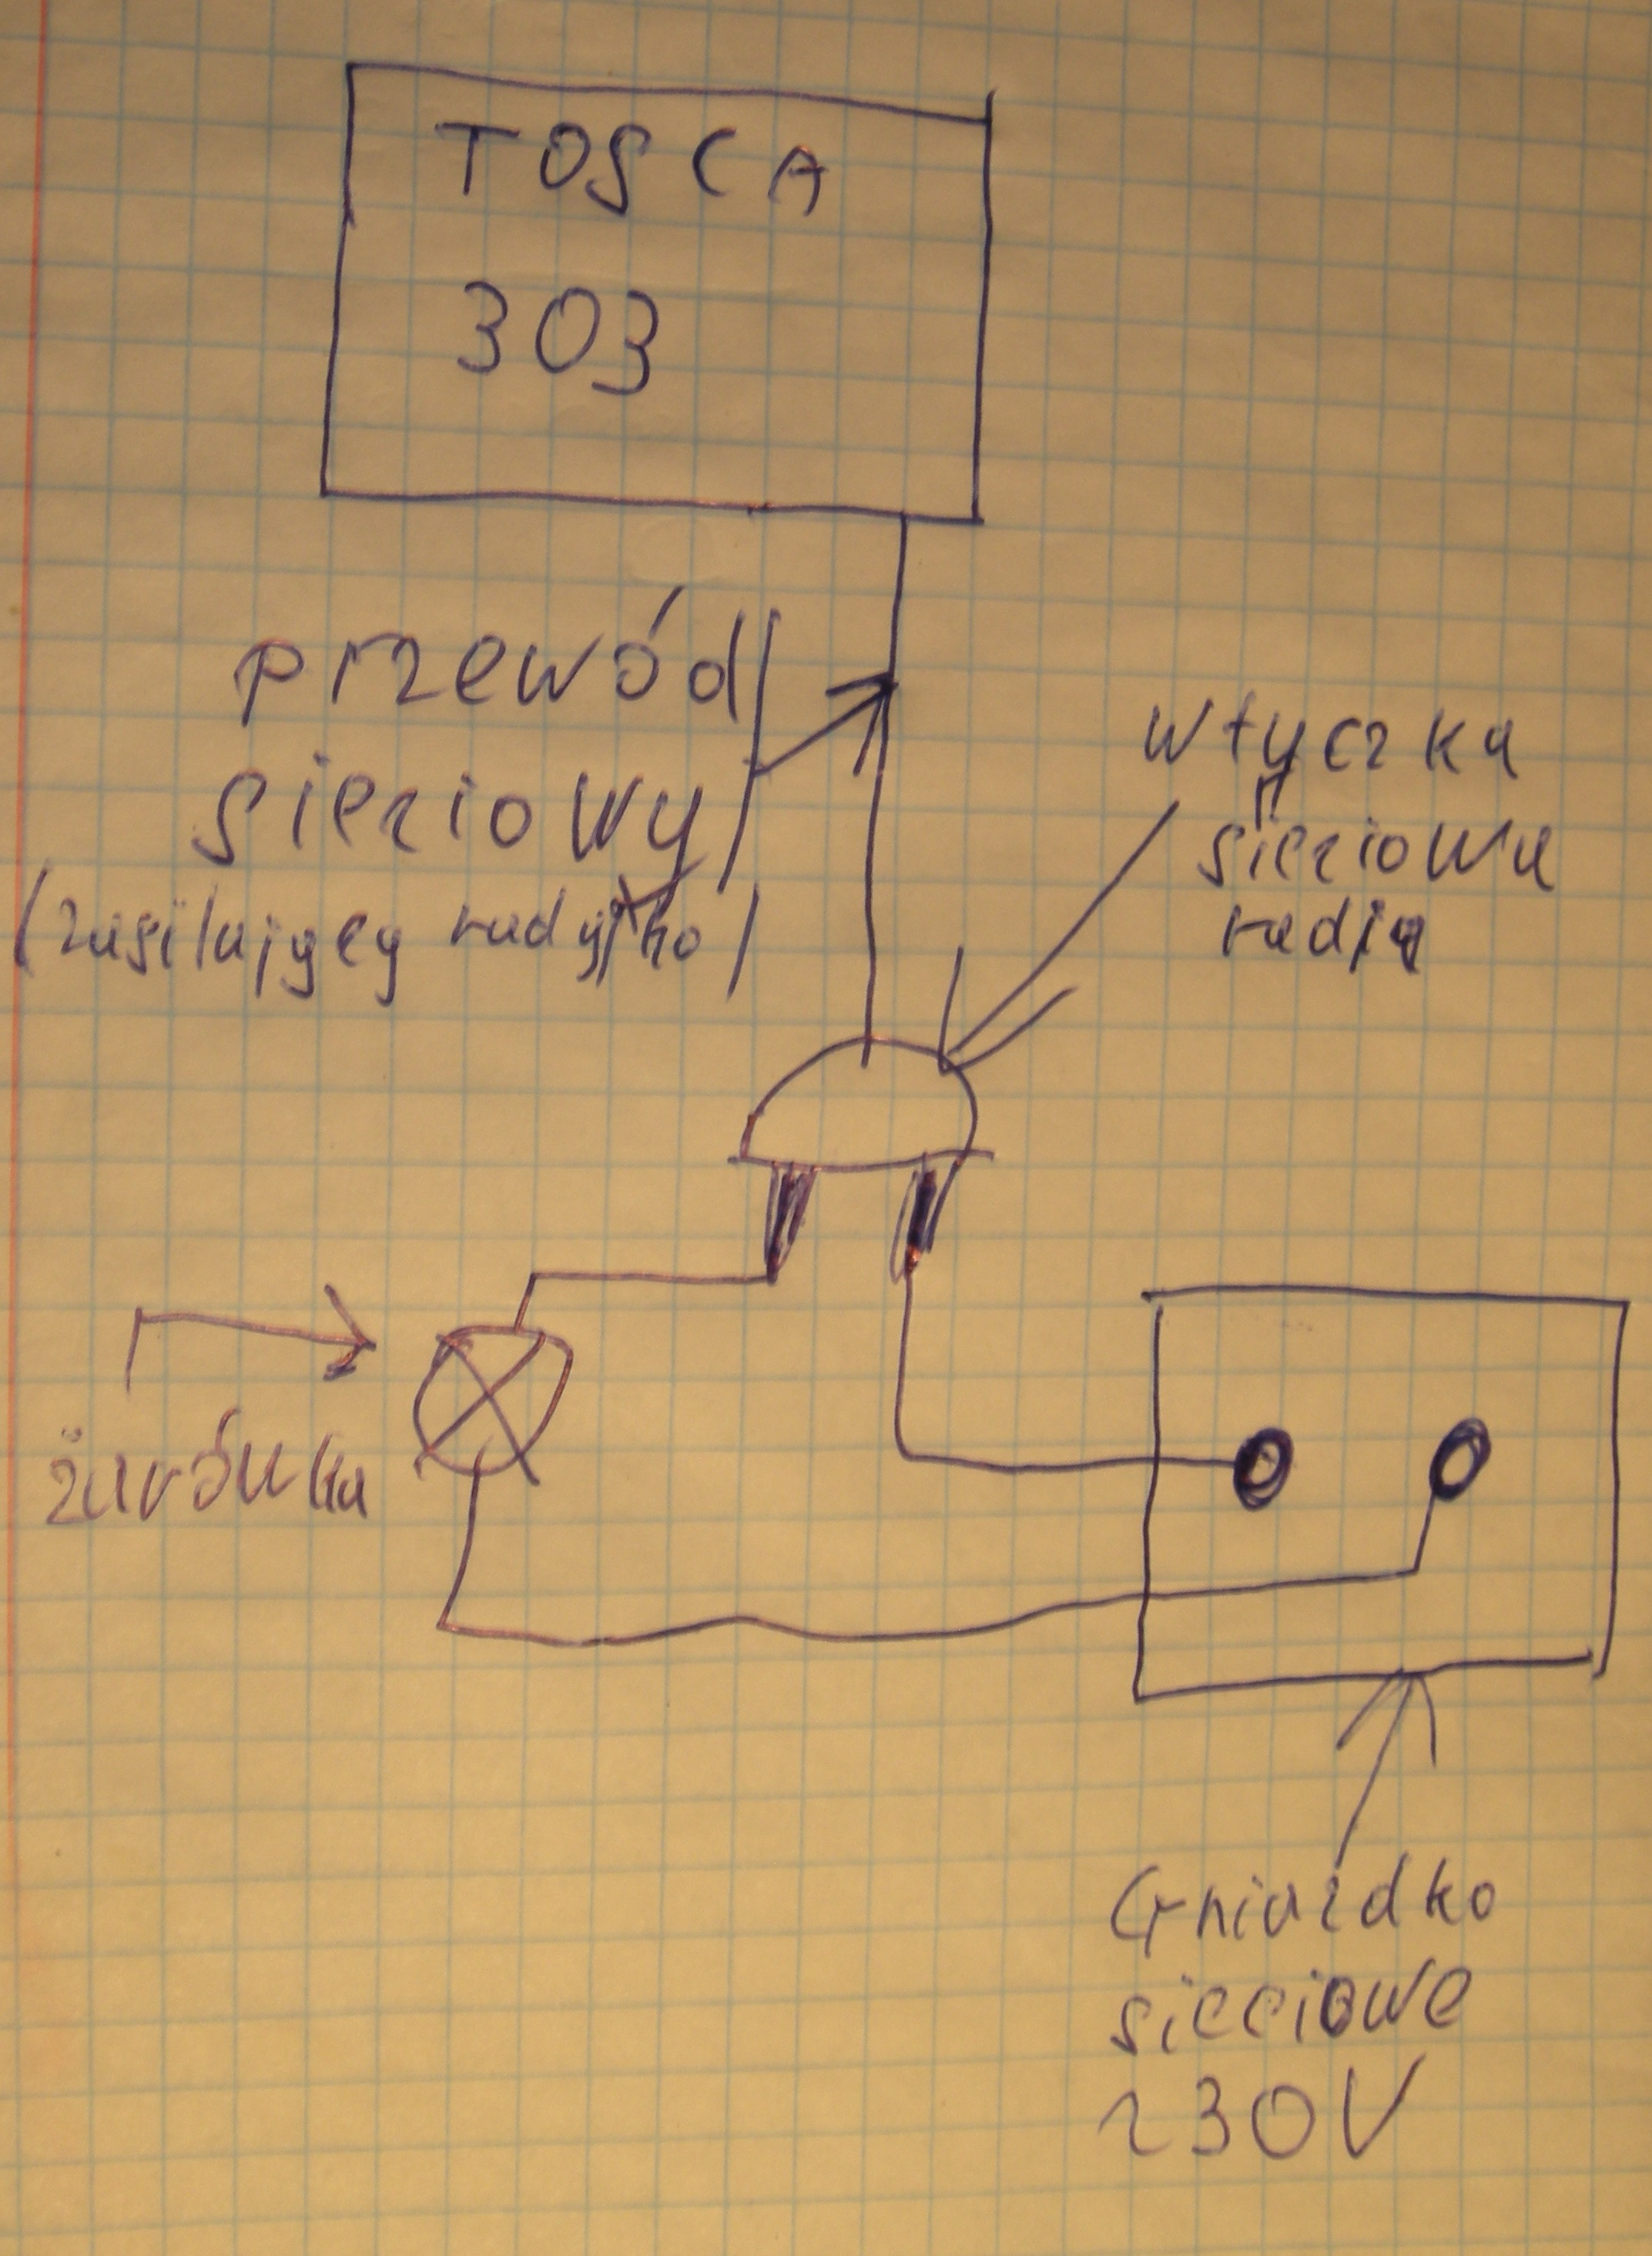 TOSCA
303
przewód
sieciowy
(zasilający radyjko)
wtyczka
sieciowa
radia
żarówka
Gniazdko
sieciowe
230V